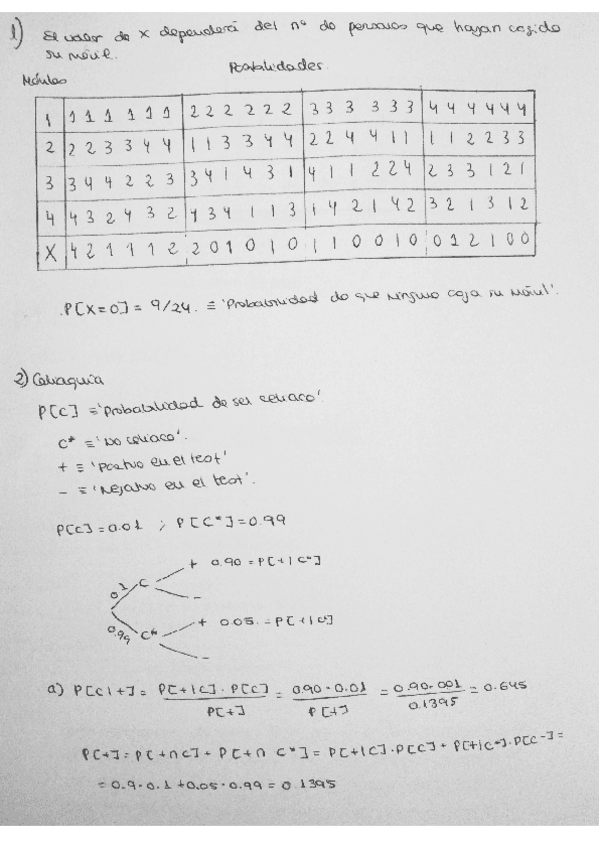 1) El valor de X dependerá del nº de personas que hayan cogido
su móvil.
Móviles Posibilidades
1 1 1 1 1 1 1 2 2 2 2 2 2 3 3 3 3 3 3 4 4 4 4 4 4
2 2 2 3 3 4 4 1 1 3 3 4 4 2 2 4 4 1 1 1 1 2 2 3 3
3 3 4 4 2 2 3 3 4 1 4 3 1 4 1 1 2 2 4 2 3 3 1 2 1
4 4 3 2 4 3 2 4 3 4 1 1 3 1 4 2 1 4 2 3 2 1 3 1 2
X 4 2 1 1 1 2 2 0 1 0 1 0 1 1 0 0 1 0 0 1 2 1 0 0
P[X=0] = 9/24. ≡ 'Probabilidad de que ninguno coja su móvil'.
2) Celiaquía
P[C] ≡ 'Probabilidad de ser celiaco'
C* ≡ 'No celiaco'.
+ ≡ 'Positivo en el test'
- ≡ 'Negativo en el test'.
P[C] = 0.01 ; P[C*] = 0.99
+ 0.90 = P[+|C*]
0.1 C
-
0.99 C* + 0.05. = P[+|C]
-
a) P[C|+] = P[+|C] · P[C] / P[+] = 0.90 · 0.01 / P[+] = 0.90 · 001 / 0.1395 = 0.645
P[+] = P[+∩C] + P[+∩ C*] = P[+|C] · P[C] + P[+|C*] · P[C-] =
= 0.9 · 0.1 + 0.05 · 0.99 = 0.1395